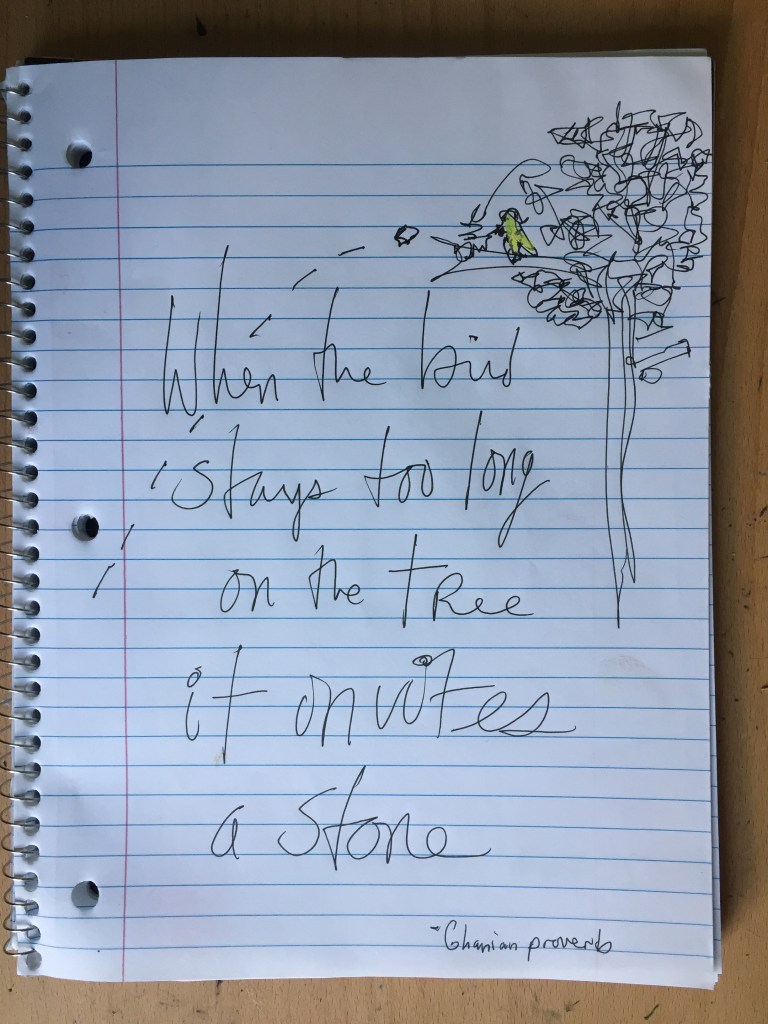 When the bird
stays too long
on the tree
it onvites
a stone
-Ghanian proverb